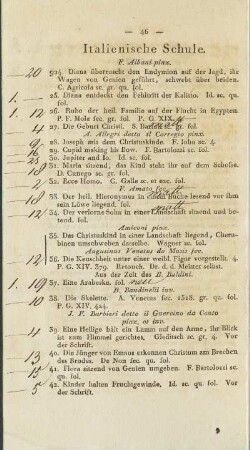 — 46 —
Italienische Schule.
F. Albani pinx.
20 524. Diana überrascht den Endymion auf der Jagd, ihr
Wagen von Genien geführt, schwebt über beiden.
C. Agricola sc. gr. qu. fol.
1. 25. Diana entdeckt den Fehltritt der Kalisto. Id. sc. qu.
fol.
1. 12 26. Ruhe der heil. Familie auf der Flucht in Egypten.
P. F. Mola fec. gr. qu. fol. P. G. XIX.
4 27. Die Geburt Christi. S. gr. fol.
A. Allegri detto il Correggio pinx.
28. Joseph mit dem Christuskinde. F. John sc. 4.
29. Cupid making his Bow. F. Bartolozzi sc. fol.
30. Jupiter und Io. Id. sc. fol.
31. Maria sitzend, das Kind steht ihr auf dem Schofse.
D. Cunego sc. gr. fol.
2 32. Ecce Homo. C. Galle sc. et exc. fol.
F. Amato fec.
18 33. Der heil. Hieronymus in einem Buche lesend vor ihm
sein Löwe liegend. fol.
1. 12 34. Der verlorne Sohn in einer Landschaft sitzend und be-
tend. fol.
Amiconi pinx.
35. Das Christuskind in einer Landschaft liegend, Cheru-
binen umschweben denselben. Wagner sc. fol.
Augustinus Venetus de Musis fec.
12 36. Die Keuschheit unter einer weibl. Figur vorgestellt. 4.
P. G. XIV. 379. Retouch. Dr. d. d. Meister selbst.
Aus der Zeit des B. Bellini.
1. 19 37. Eine Arabeske. fol.
B. Bandinelli inv.
10 38. Die Skelette. A. Venetus fec. 1518. gr. qu. fol.
P. G. XIV. 424.
J. F. Barbieri detto il Guercino da Cento
pinx. et inv.
4 39. Eine Heilige hält ein Lamm auf den Arme, ihr Blick
ist zum Himmel gerichtet, Gleditsch sc. gr. 4. Vor
der Schrift.
13 40. Die Jünger von Emaus erkennen Christum am Brechen
des Brodes. De Non fec. qu. fol.
15 41. Flora sitzend von Genien umgeben. F. Bartolozzi sc.
qu. fol.
5 42. Kinder halten Fruchtgewinde, Id. sc. qu. fol. Vor
der Schrift.
9